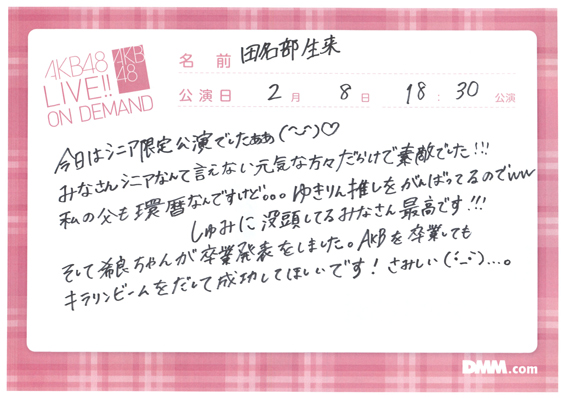 AKB48
LIVE!!
ON DEMAND
AKB
48
名前 田名部生来
公演日 2月 8日 18:30 公演
今日はシニア限定公演でしたぁぁ(^-^)♡
みなさんシニアなんて言えない元気な方々だらけで素敵でした!!!
私の父も環暦なんですけど。。。ゆきりん推しをがんばってるのでww
しゅみに没頭してるみなさん最高です!!!
そして希良ちゃんが卒業発表をしました。AKBを卒業しても
キラリンビームをだして成功してほしいです!さみしい(;_;)...。
DMM.com